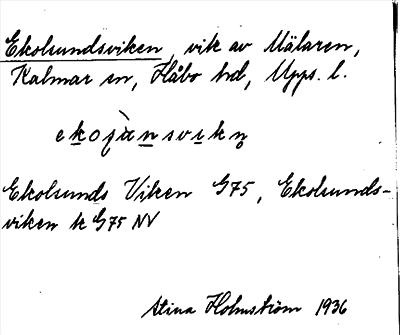 Ekolsundsviken, vik av Mälaren,
Kalmar sn, Håbo hd, Upps. l.
Ekolsunds Viken G75, Ekolsunds-
viken k G75 NV
Stina Holmström 1936